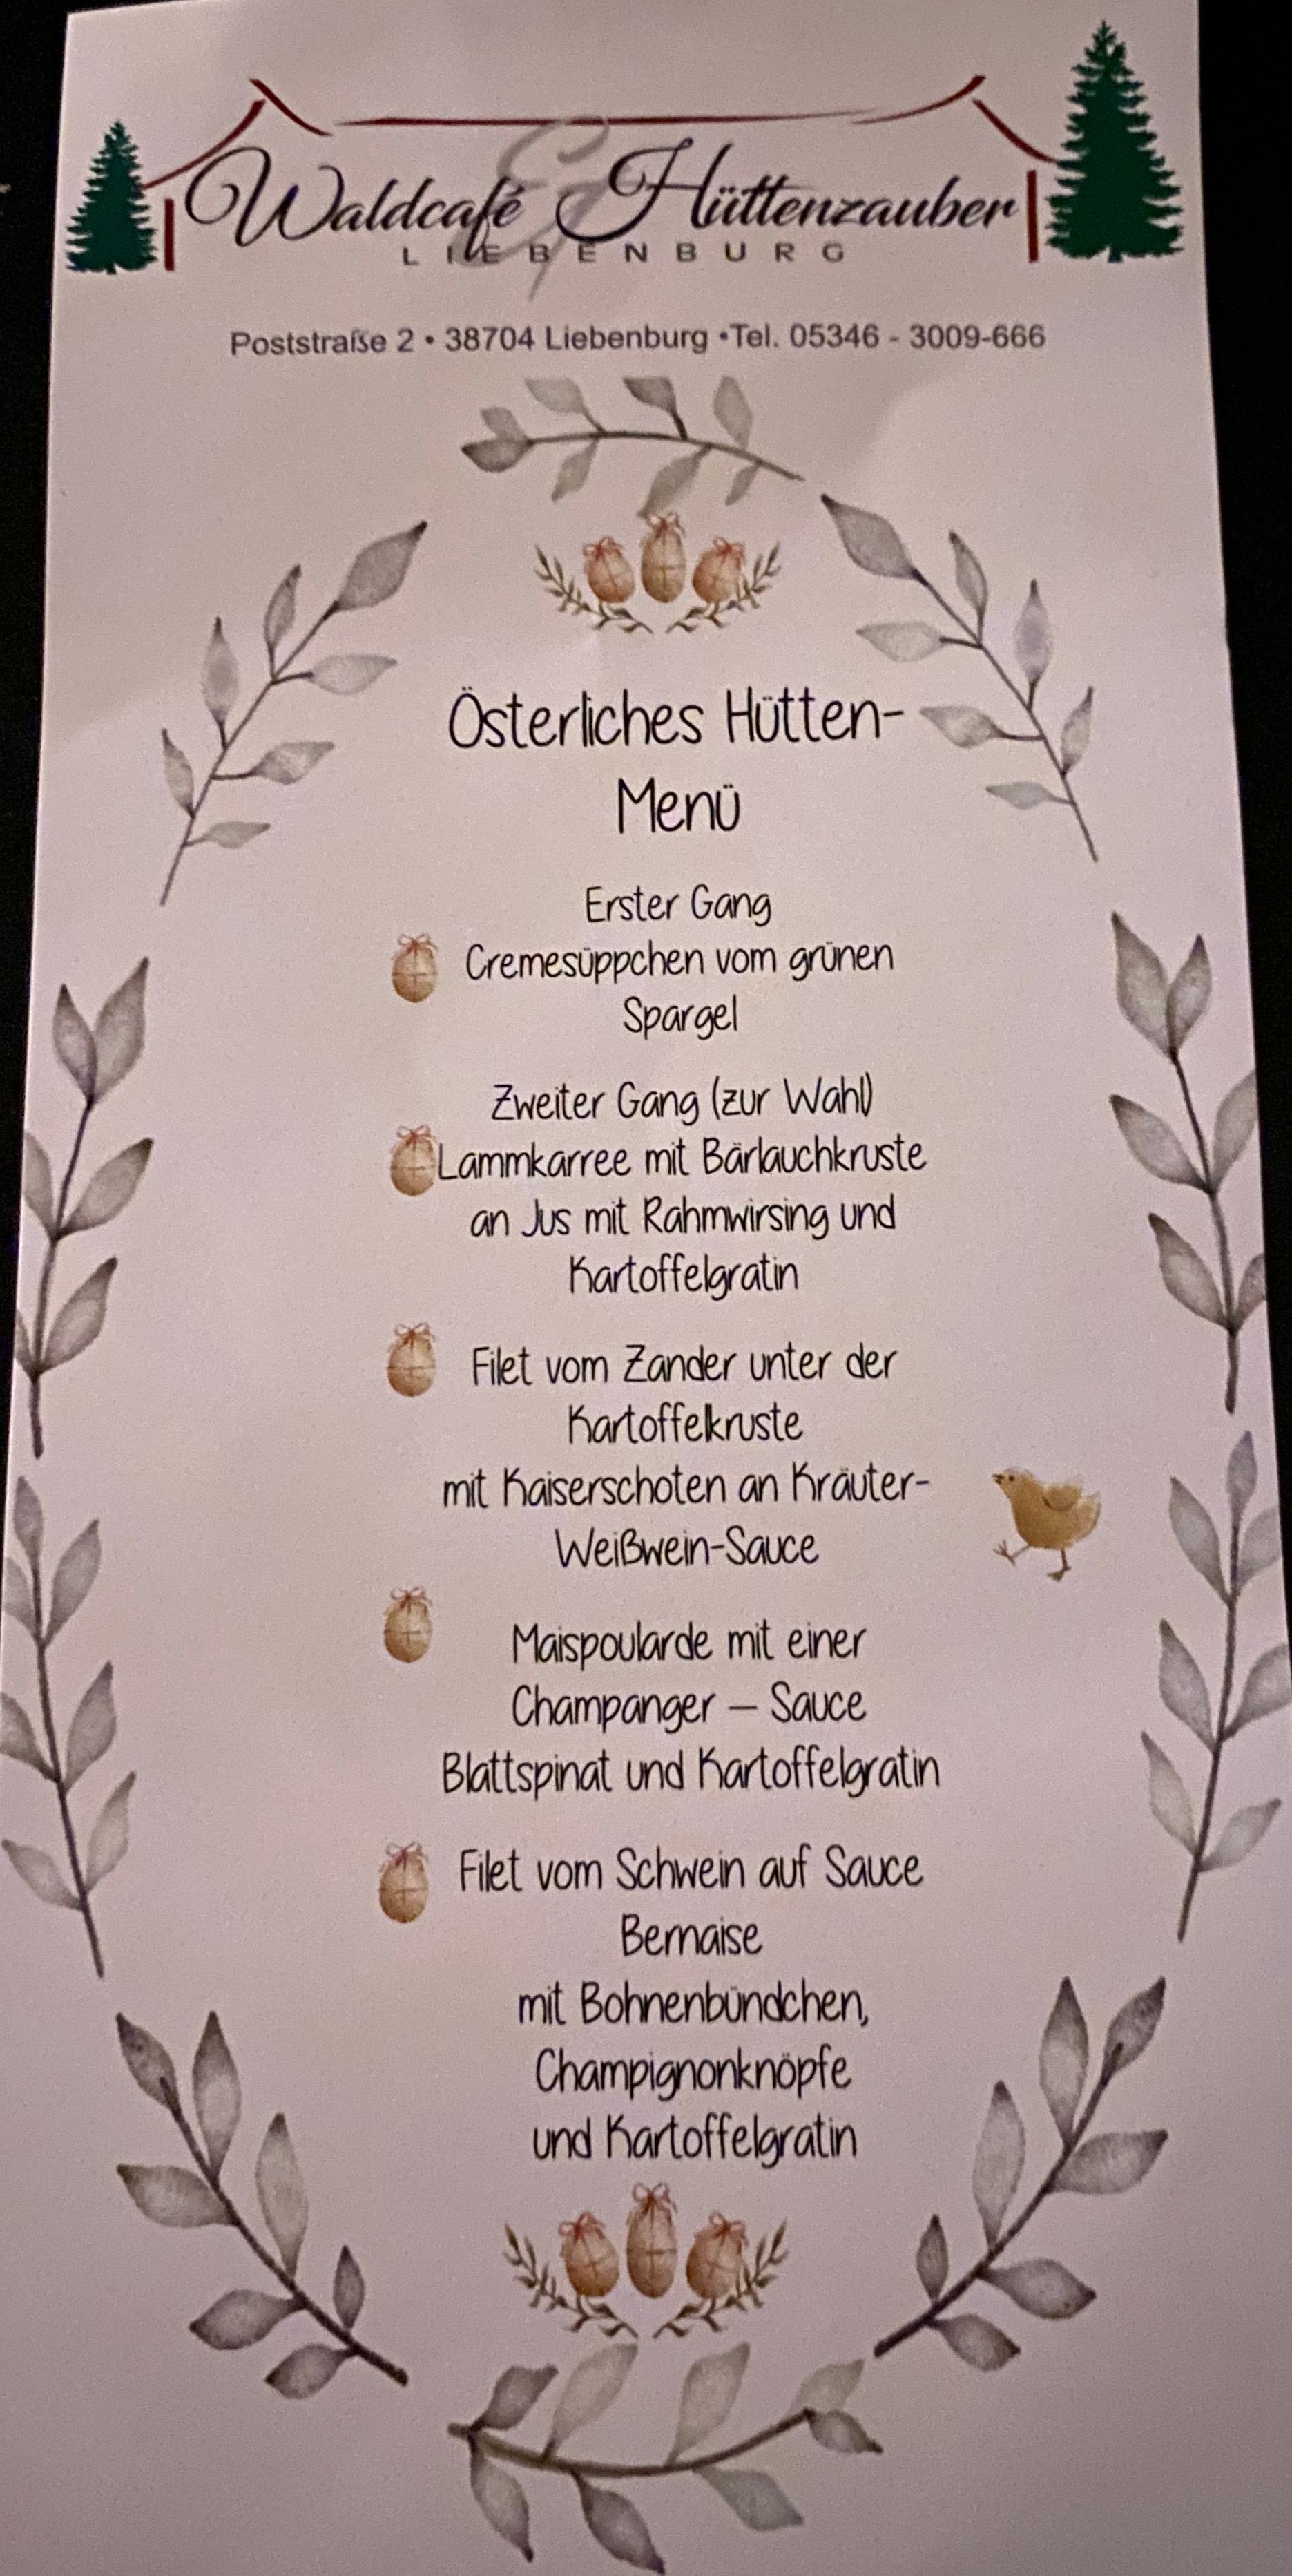 Waldcafé & Hüttenzauber
LIEBENBURG
Poststraße 2 • 38704 Liebenburg •Tel. 05346 - 3009-666
Österliches Hütten-
Menü
Erster Gang
Cremesüppchen vom grünen
Spargel
Zweiter Gang (zur Wahl)
Lammkarree mit Bärlauchkruste
an Jus mit Rahmwirsing und
Kartoffelgratin
Filet vom Zander unter der
Kartoffelkruste
mit Kaiserschoten an Kräuter-
Weißwein-Sauce
Maispoularde mit einer
Champanger – Sauce
Blattspinat und Kartoffelgratin
Filet vom Schwein auf Sauce
Bernaise
mit Bohnenbündchen,
Champignonknöpfe
und Kartoffelgratin